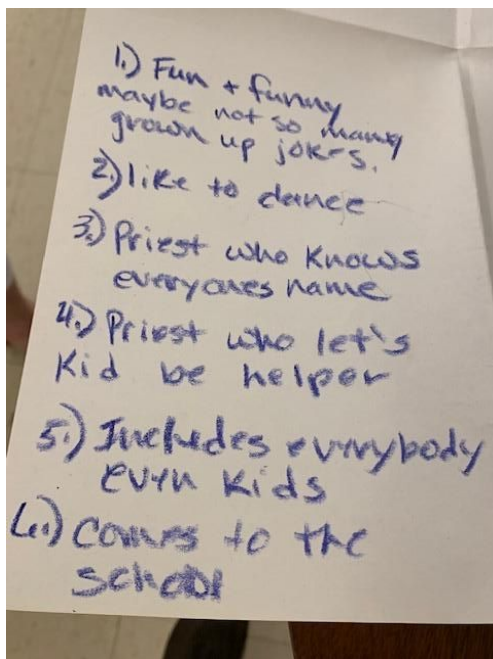 1.) Fun + funny
maybe not so many
grown up jokes.
2.) like to dance
3.) Priest who knows
everyones name
4.) Priest who let's
Kid be helper
5.) Includes everybody
even Kids
6.) comes to the
school